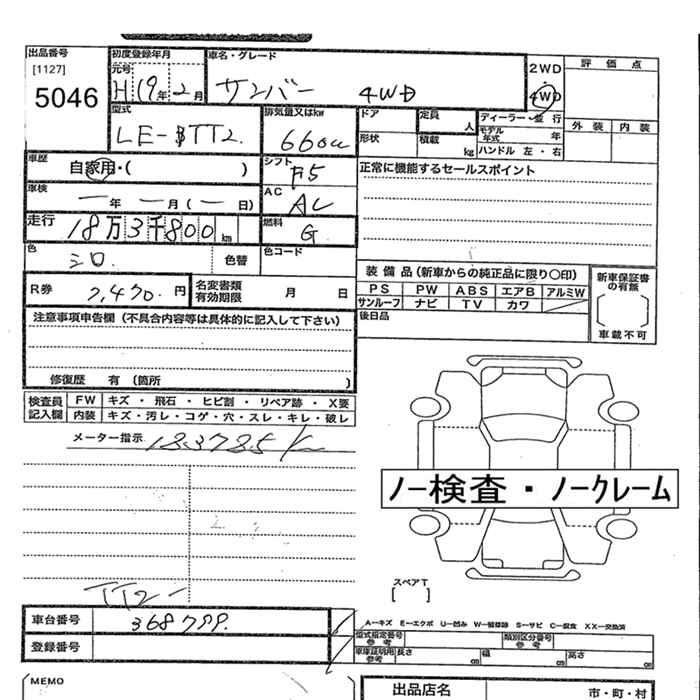 出品番号 初度登録年月 車名・グレード 2WD 評価点
[1127] 元号
5046 H19年2月 サンバー 4WD 4WD
型式 排気量又はkw ドア 定員 人 ディーラー・並行 外装 内装
LE-TT2. 660cc 形状 積載 kg モデル年式 年
ハンドル 左・右
車歴 シフト 正常に機能するセールスポイント
自家用・( ) F5
車検 AC
一年 一月(一日) AC
走行 18万3千800km 燃料 G
色 シロ. 色替 色コード
装備品(新車からの純正品に限り〇印) 新車保証書の有無
R券 7,470.円 名変書類有効期限 月 日 PS PW ABS エアB アルミW
サンルーフ ナビ TV カワ
注意事項申告欄(不具合内容等は具体的に記入して下さい) 後日品 車載不可
修復歴 有(箇所 )
検査員 FW キズ・飛石・ヒビ割・リペア跡・X要
記入欄 内装 キズ・汚レ・コゲ・穴・スレ・キレ・破レ
メーター指示 183785K
ノー検査・ノークレーム
スペアT
[ ]
TT2-
車台番号 368799.
A-キズ E-エクボ U-凹み W-補修跡 S-サビ C-腐食 XX-交換済
登録番号 型式指定番号 参考 類別区分番号 参考
車庫証明用 参考 長さ cm 幅 cm 高さ cm
MEMO 出品店名 市・町・村